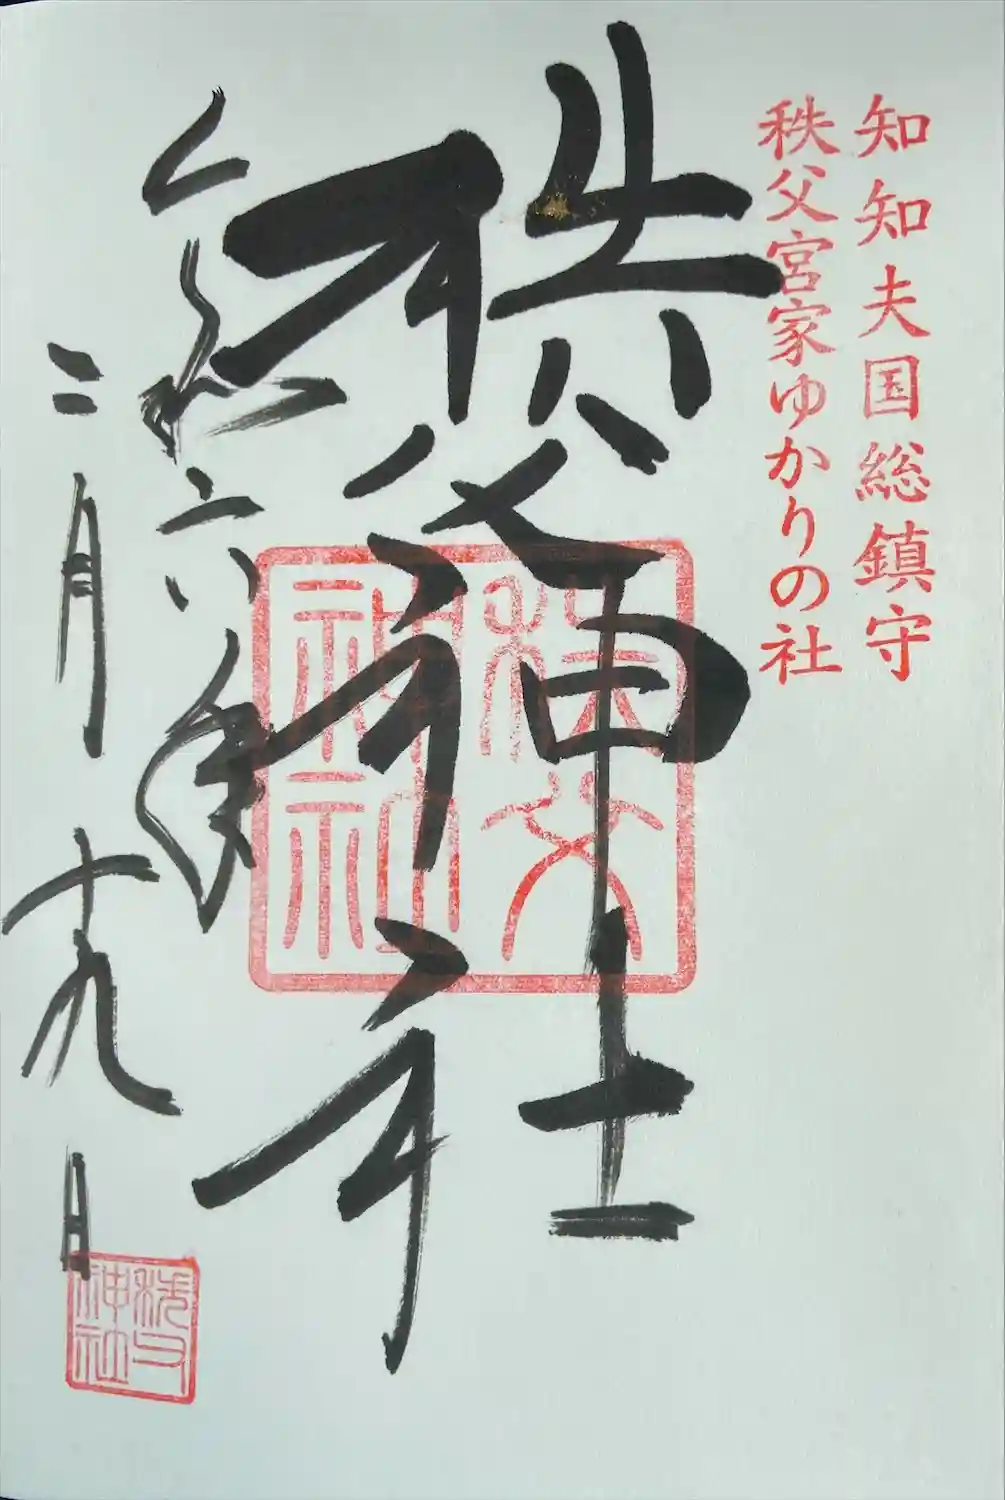 知知夫国総鎮守
秩父宮家ゆかりの社
秩父神社
令和六年
二月十九日
秩父
神社
秩父
神社